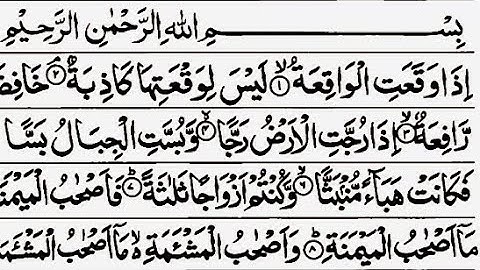 بِسْمِ اللهِ الرَّحْمٰنِ الرَّحِيْمِ
اِذَا وَقَعَتِ الْوَاقِعَةُ ۙ﴿۱﴾ لَيْسَ لِوَقْعَتِهَا كَاذِبَةٌ ۘ﴿۲﴾ خَافِضَ
رَّافِعَةٌ ۙ﴿۳﴾ اِذَا رُجَّتِ الْاَرْضُ رَجًّا ۙ﴿۴﴾ وَّ بُسَّتِ الْجِبَالُ بَسًّا
فَكَانَتْ هَبَآءً مُّنْۢبَثًّا ۙ﴿۶﴾ وَّكُنْتُمْ اَزْوَاجًا ثَلٰثَةً ؕ﴿۷﴾ فَاَصْحٰبُ الْمَيْمَنَ
مَاۤ اَصْحٰبُ الْمَيْمَنَةِ ؕ﴿۸﴾ وَاَصْحٰبُ الْمَشْئَمَةِ ۙ مَاۤ اَصْحٰبُ الْمَشْئَمَ